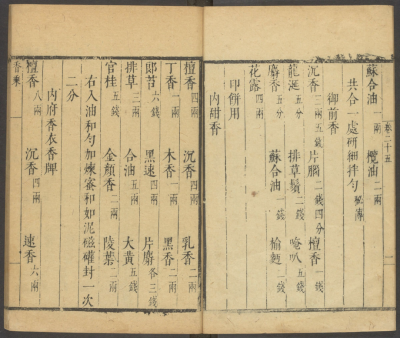 蘇合油一兩 欖油二兩
共合一處研細拌勻
御前香
沉香三兩五錢 片腦二錢四分 檀香一錢
龍涎五分 排草鬚二錢 唵叭五分
麝香五分 蘇合油一錢 榆麵二錢
花露四兩
印餅用
內甜香
檀香四兩 沉香四兩 乳香二兩
丁香一兩 木香一兩 黑香二兩
郎苔六錢 黑速四兩 片麝各三錢
排草三兩 合油五兩 大黃五錢
官桂五錢 金顏香二兩 陵葉二兩
右入油和勻加煉蜜和如泥磁罐封一次
二分
內府香衣香牌
檀香八兩 沉香四兩 速香六兩